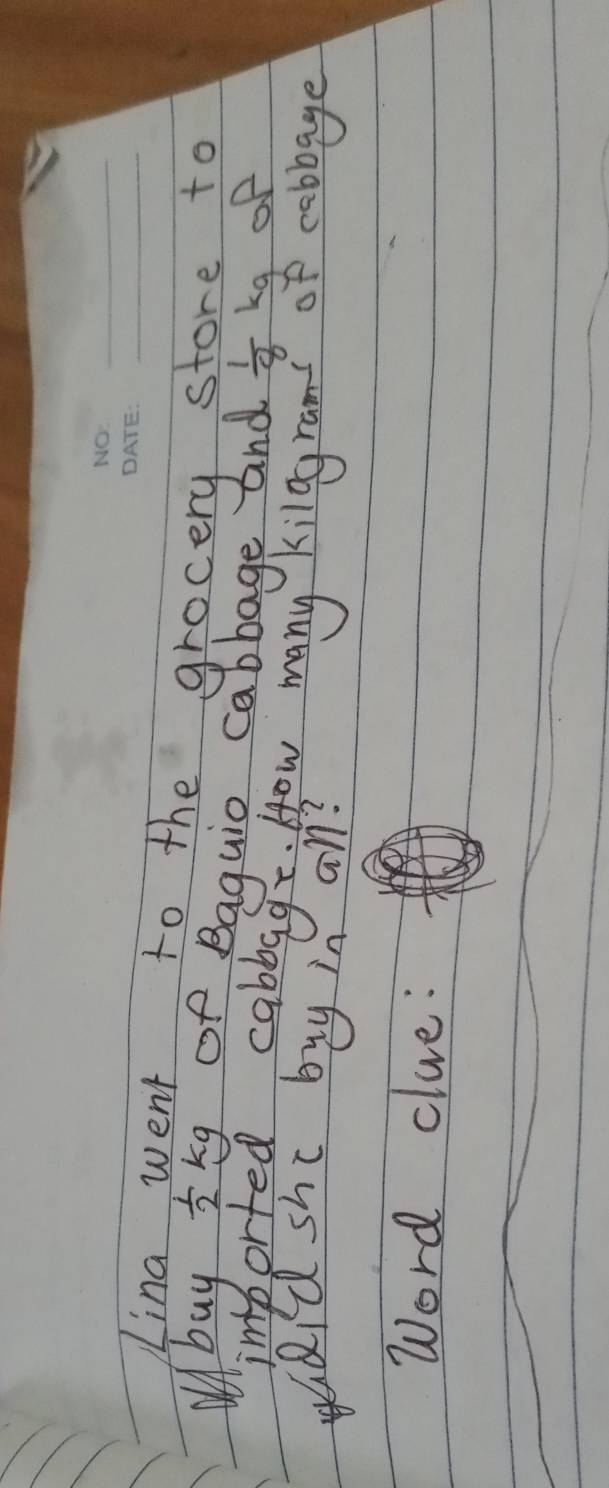 NO:
DATE:
Lina went to the grocery store to
buy 1/2 kg of Baguio cabbage and 1/8 kg of
imported cabbage. How many kilagrams of cabbage
did she buy in all?
Word clue: